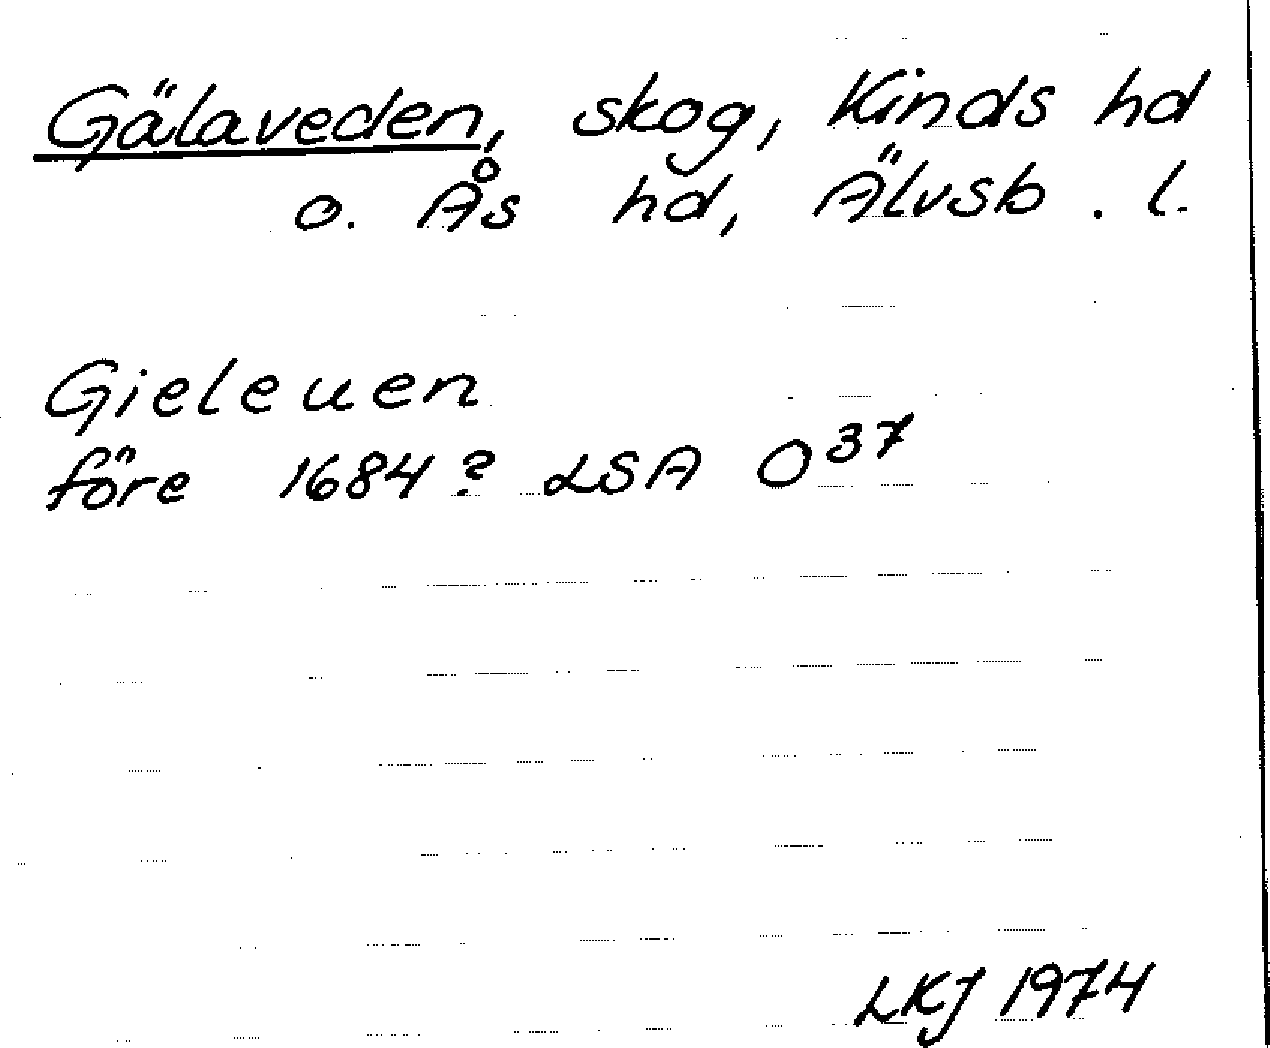 Gälaveden, skog, Kinds hd
o. Ås hd, Älvsb. l.
Gieleuen
före 1684? LSA O37
LKJ 1974